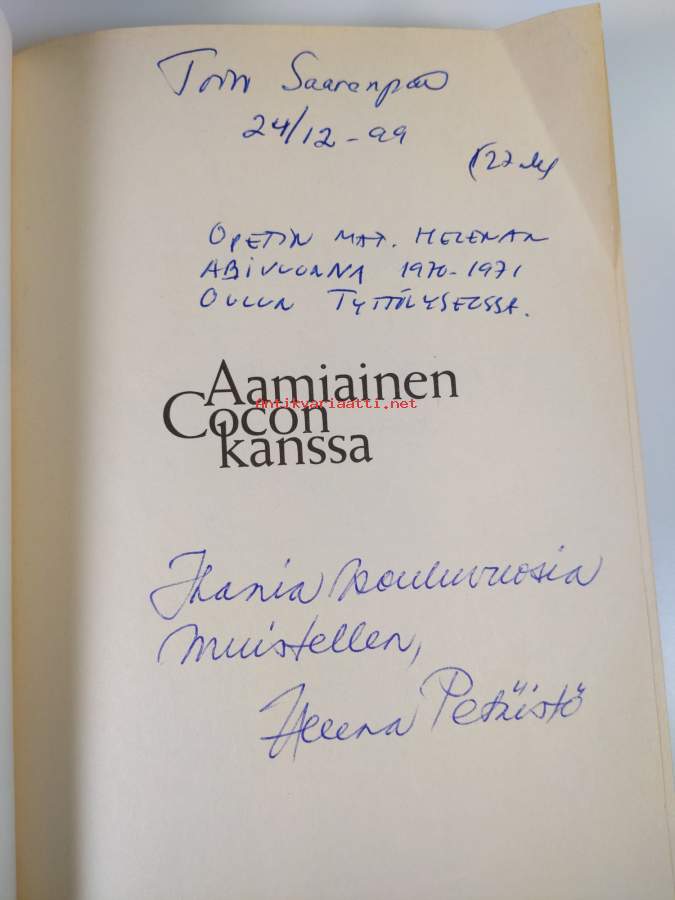 Saarenpää
24/12 -99
OPETIN MAT. HELENAN
ABIVUONNA 1970-1971
OULUN TYTTÖLYSEOSSA.
Aamiainen
Cocon
kanssa
Antikvariaatti.net
Ihania kouluvuosia
muistellen,
Helena Petäistö